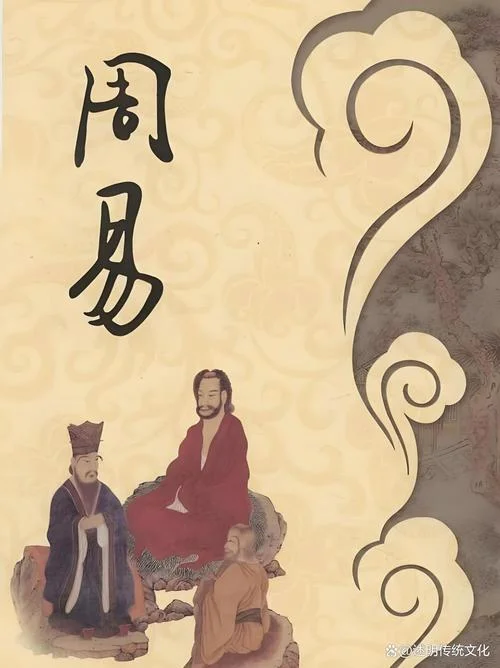 周
易
@透明传统文化